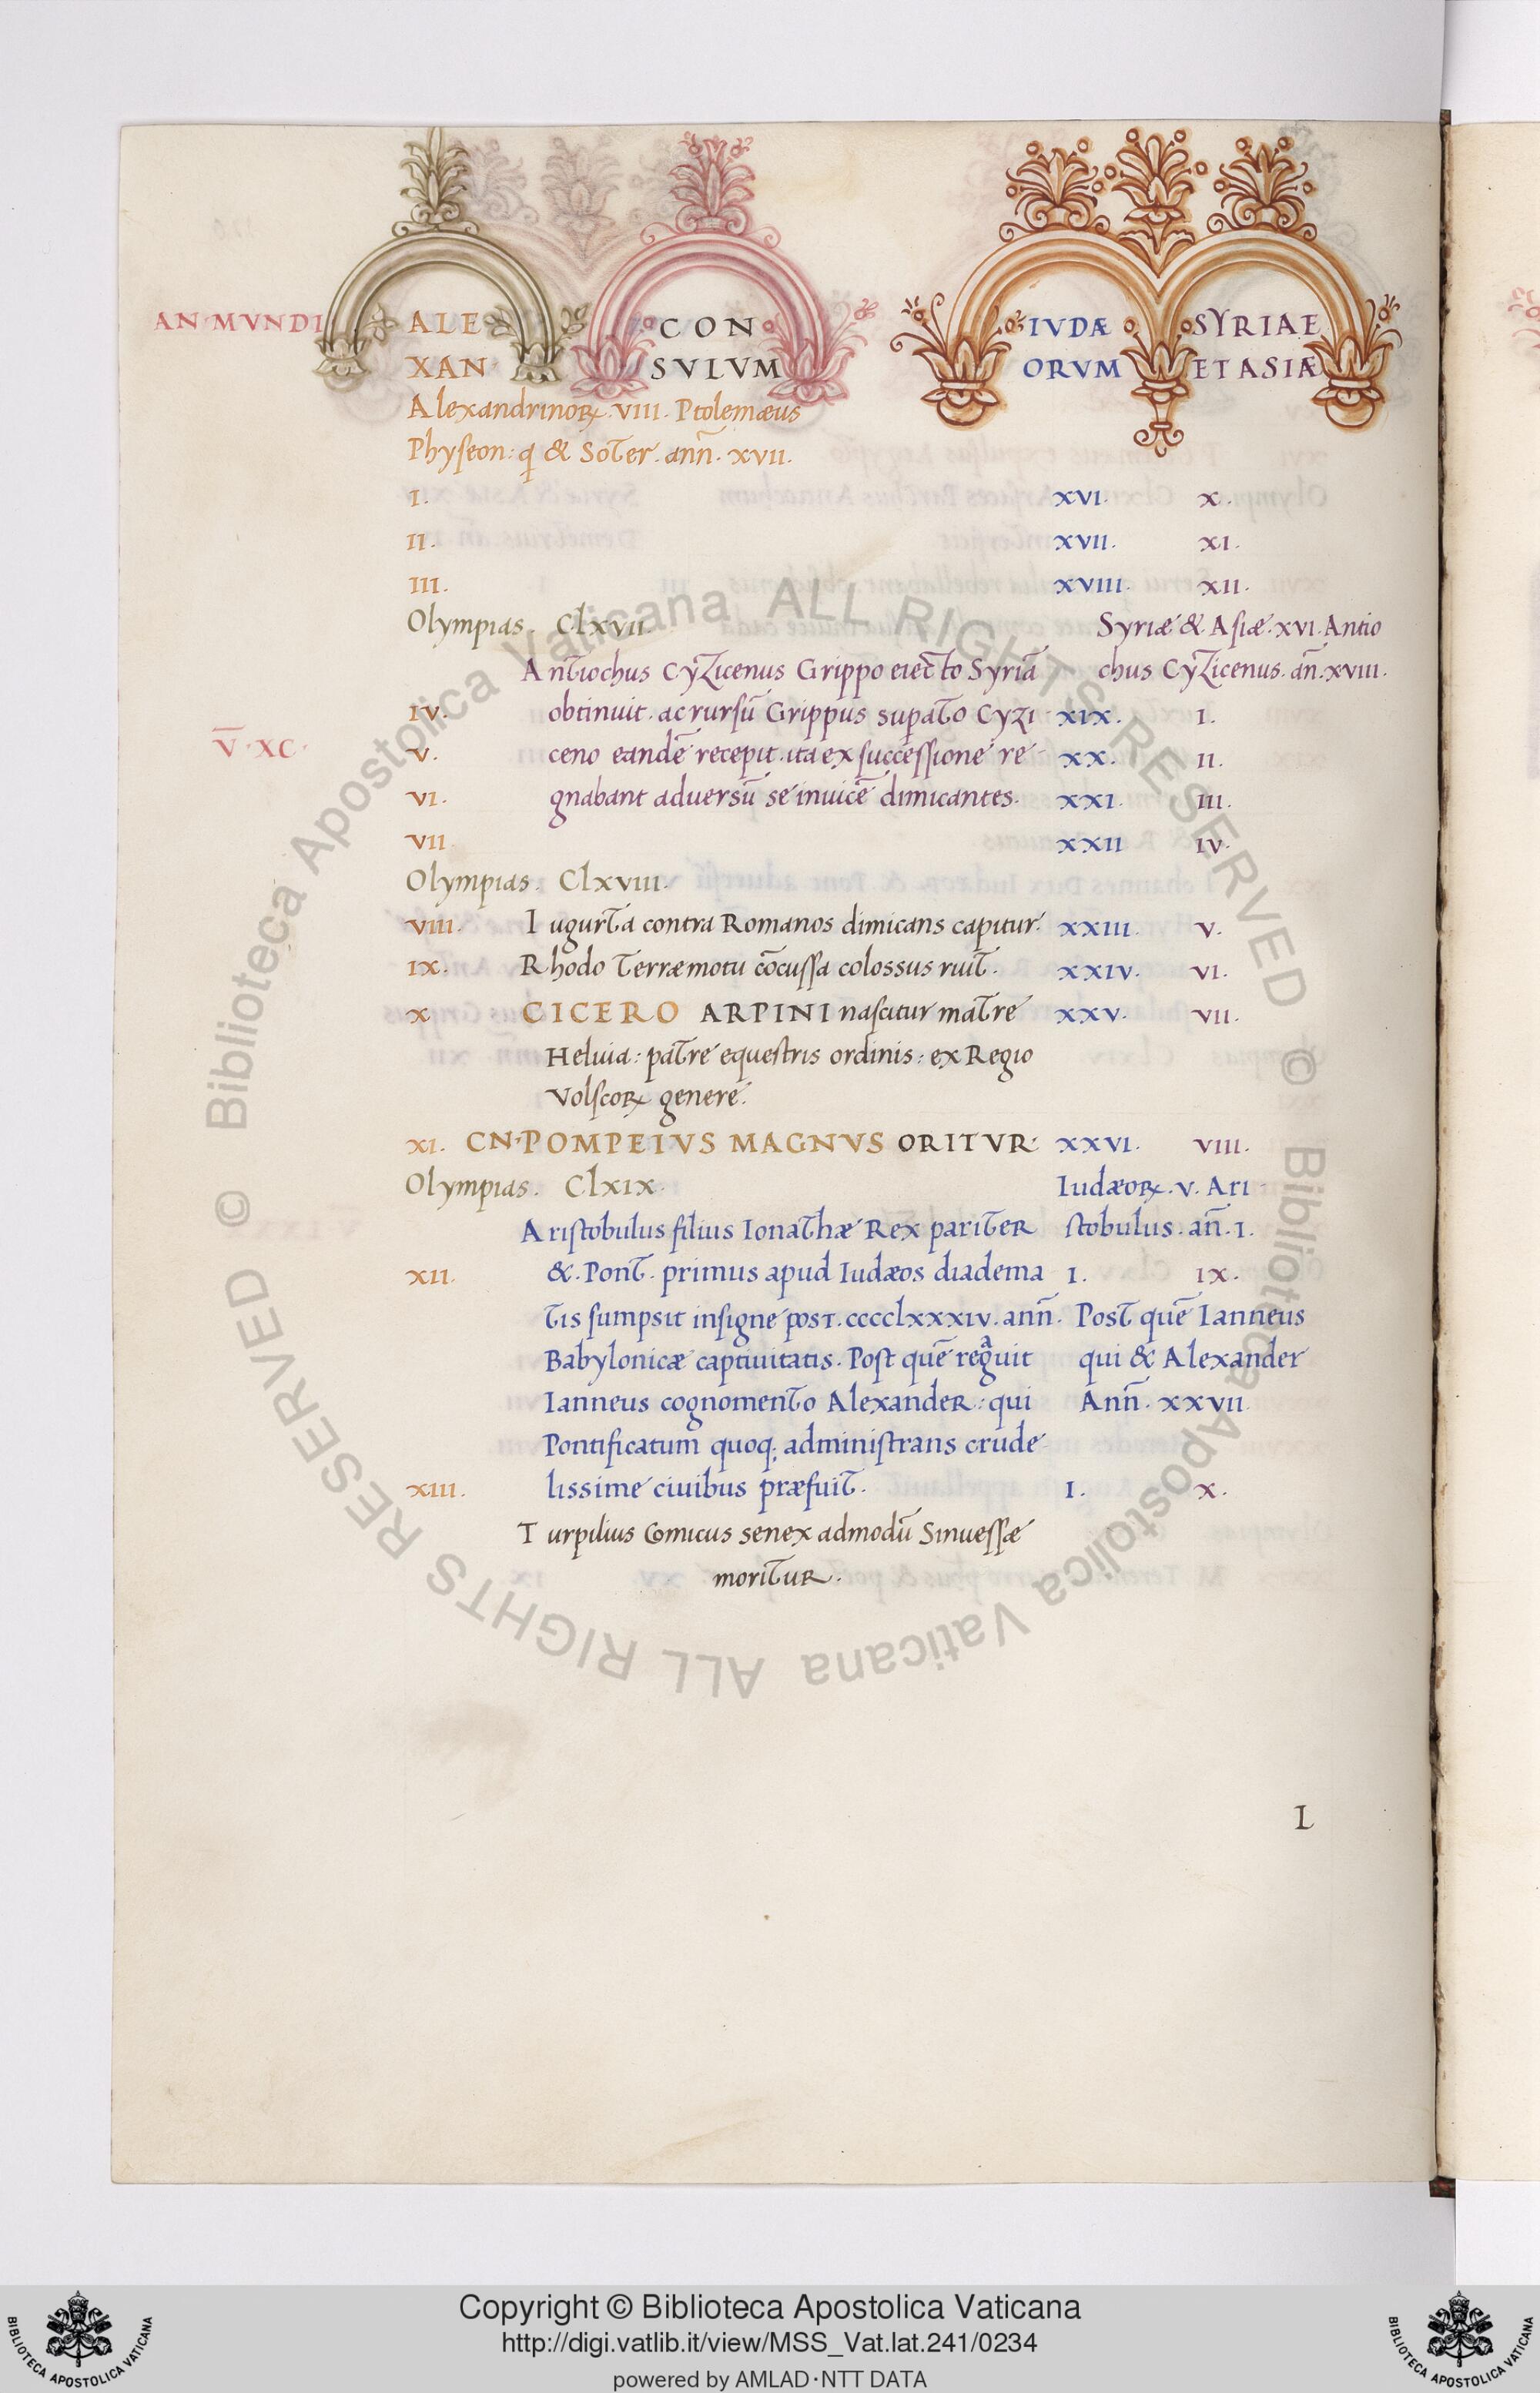 AN·MVNDI ALE CON IVDÆ SYRIAE
XAN SVLVM ORVM ET ASIÆ
Alexandrinoꝝ. VIII. Ptolemæus
Physeon: q & Soter. ann̄. XVII.
I. XVI. X.
II. XVII. XI.
III. XVIII. XII.
Olympias. ClXVII. Syriæ & Asiæ. XVI. Antio
Antiochus Cyzicenus Grippo eiecto Syriā chus Cyzicenus. an̄. XVIII.
IV. obtinuit. ac rursū Grippus supato Cyzi XIX. I.
V̅·XC· V. ceno eandē recepit. ita ex successione re- XX. II.
VI. gnabant aduersū se inuicē dimicantes. XXI. III.
VII XXII IV.
Olympias. ClXVIII.
VIII. Iugurta contra Romanos dimicans capitur. XXIII. V.
IX. Rhodo terræmotu cōcussa colossus ruit. XXIV. VI.
X CICERO ARPINI nascitur matre XXV. VII.
Heluia: patre equestris ordinis: ex Regio
Volscoꝝ genere.
XI. CN·POMPEIVS MAGNVS ORITVR· XXVI. VIII.
Olympias. ClXIX. Iudæoꝝ. V. Ari
Aristobulus filius Ionathæ Rex pariter stobulus. an̄. I.
XII. &. Pont. primus apud Iudæos diadema I. IX.
tis sumpsit insigne post. cccclxxxiv. ann̄. Post quē Ianneus
Babylonicæ captiuitatis. Post quē reg̊uit qui & Alexander
Ianneus cognomento Alexander: qui Ann̄. XXVII
Pontificatum quoq; administrans crude-
XIII. lissime ciuibus præfuit. I. X.
Turpilius Comicus senex admodū Sinuessæ
moritur.
L
© Biblioteca Apostolica Vaticana ALL RIGHTS RESERVED © Biblioteca Apostolica Vaticana ALL RIGHTS RESERVED
Copyright © Biblioteca Apostolica Vaticana
http://digi.vatlib.it/view/MSS_Vat.lat.241/0234
powered by AMLAD·NTT DATA
BIBLIOTECA APOSTOLICA VATICANA
BIBLIOTECA APOSTOLICA VATICANA